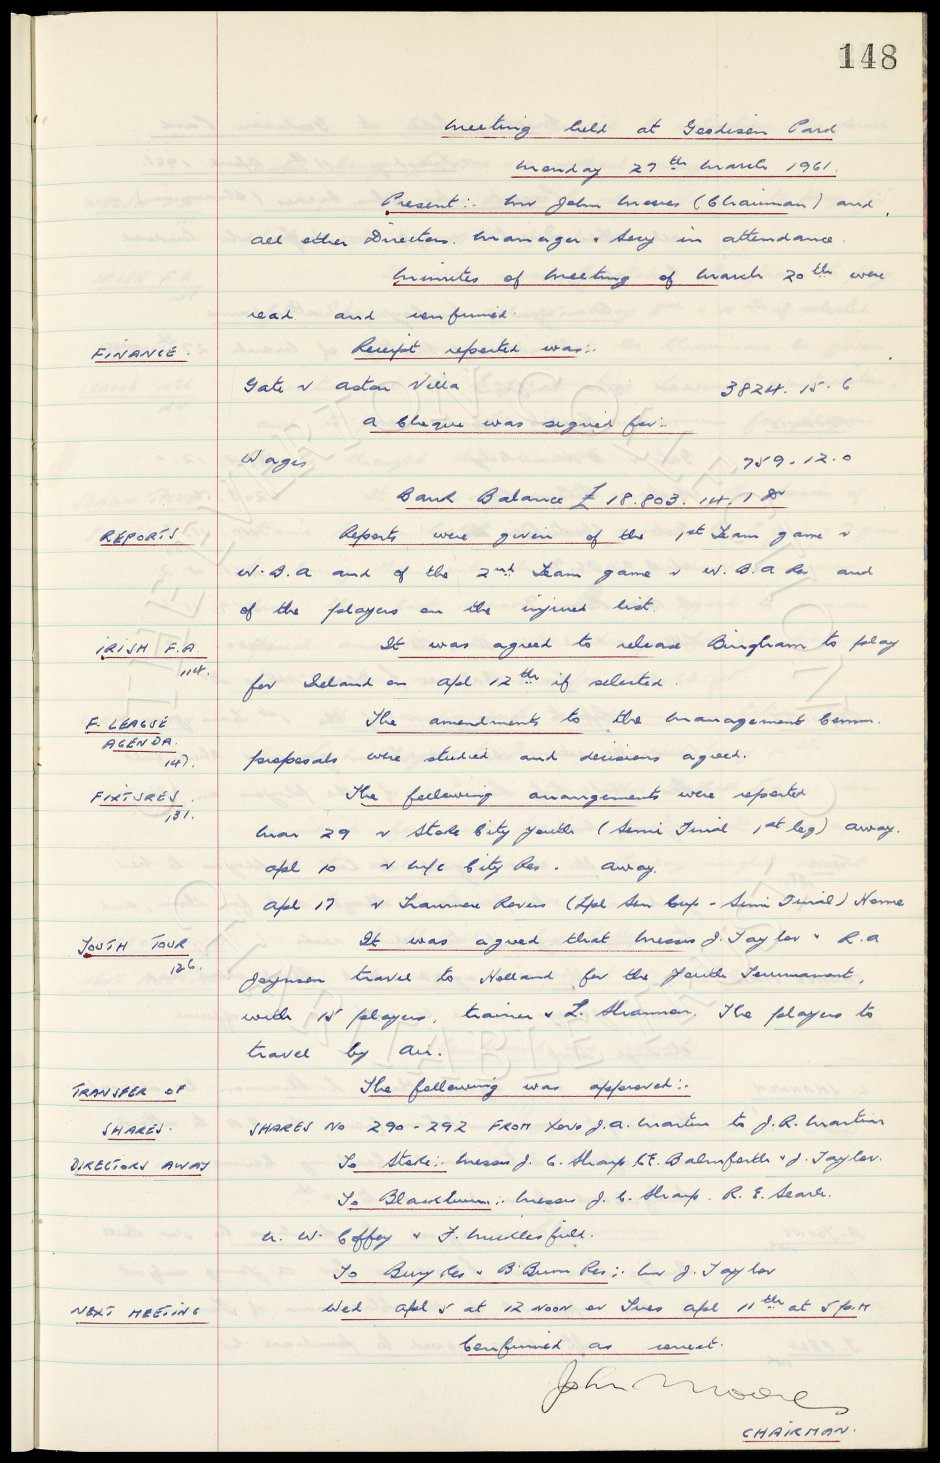 148
Meeting held at Goodison Park
Monday 27th March 1961.
Present:- Mr John Moores (Chairman) and
all other Directors. Manager & Secy in attendance.
Minutes of Meeting of March 20th were
read and confirmed.
FINANCE. Receipt reported was:-
Gate v Aston Villa 3824. 15. 6
A Cheque was signed for:-
Wages 759. 12. 0
Bank Balance £ 18.803. 14. 1 Dr
REPORTS Reports were given of the 1st Team game v
W.B.A and of the 2nd Team game v W.B.A Res and
of the players on the injured list.
IRISH F.A. It was agreed to release Bingham to play
114.
for Ireland on Apl 12th if selected.
F. LEAGUE The amendments to the Management Comm.
AGENDA.
147. proposals were studied and decisions agreed.
FIXTURES. The following arrangements were reported
131.
Mar 29 v Stoke City Youth (Semi Final 1st leg) Away.
Apl 10 v M/c City Res. Away.
Apl 17 v Tranmere Rovers (Lpl Sen Cup - Semi Final) Home
YOUTH TOUR It was agreed that Messrs J. Taylor & R.A
126.
Joynson travel to Holland for the Youth Tournament,
with 15 players, trainer & L. Shannon. The players to
travel by Air.
TRANSFER OF The following was approved:-
SHARES. SHARES No 290 - 292 FROM J.A. Martin to J.R. Martin
DIRECTORS AWAY To Stoke:- Messrs J. C. Sharp C.E. Balmforth & J. Taylor.
To Blackburn:- Messrs J. C. Sharp. R. E. Searle.
N. W. Coffey & F. Micklesfield.
To Bury Res & B'Burn Res:- Mr J. Taylor
NEXT MEETING Wed Apl 5 at 12 NOON or Tues Apl 11th at 5 P.M
Confirmed as correct.
John Moores
CHAIRMAN.